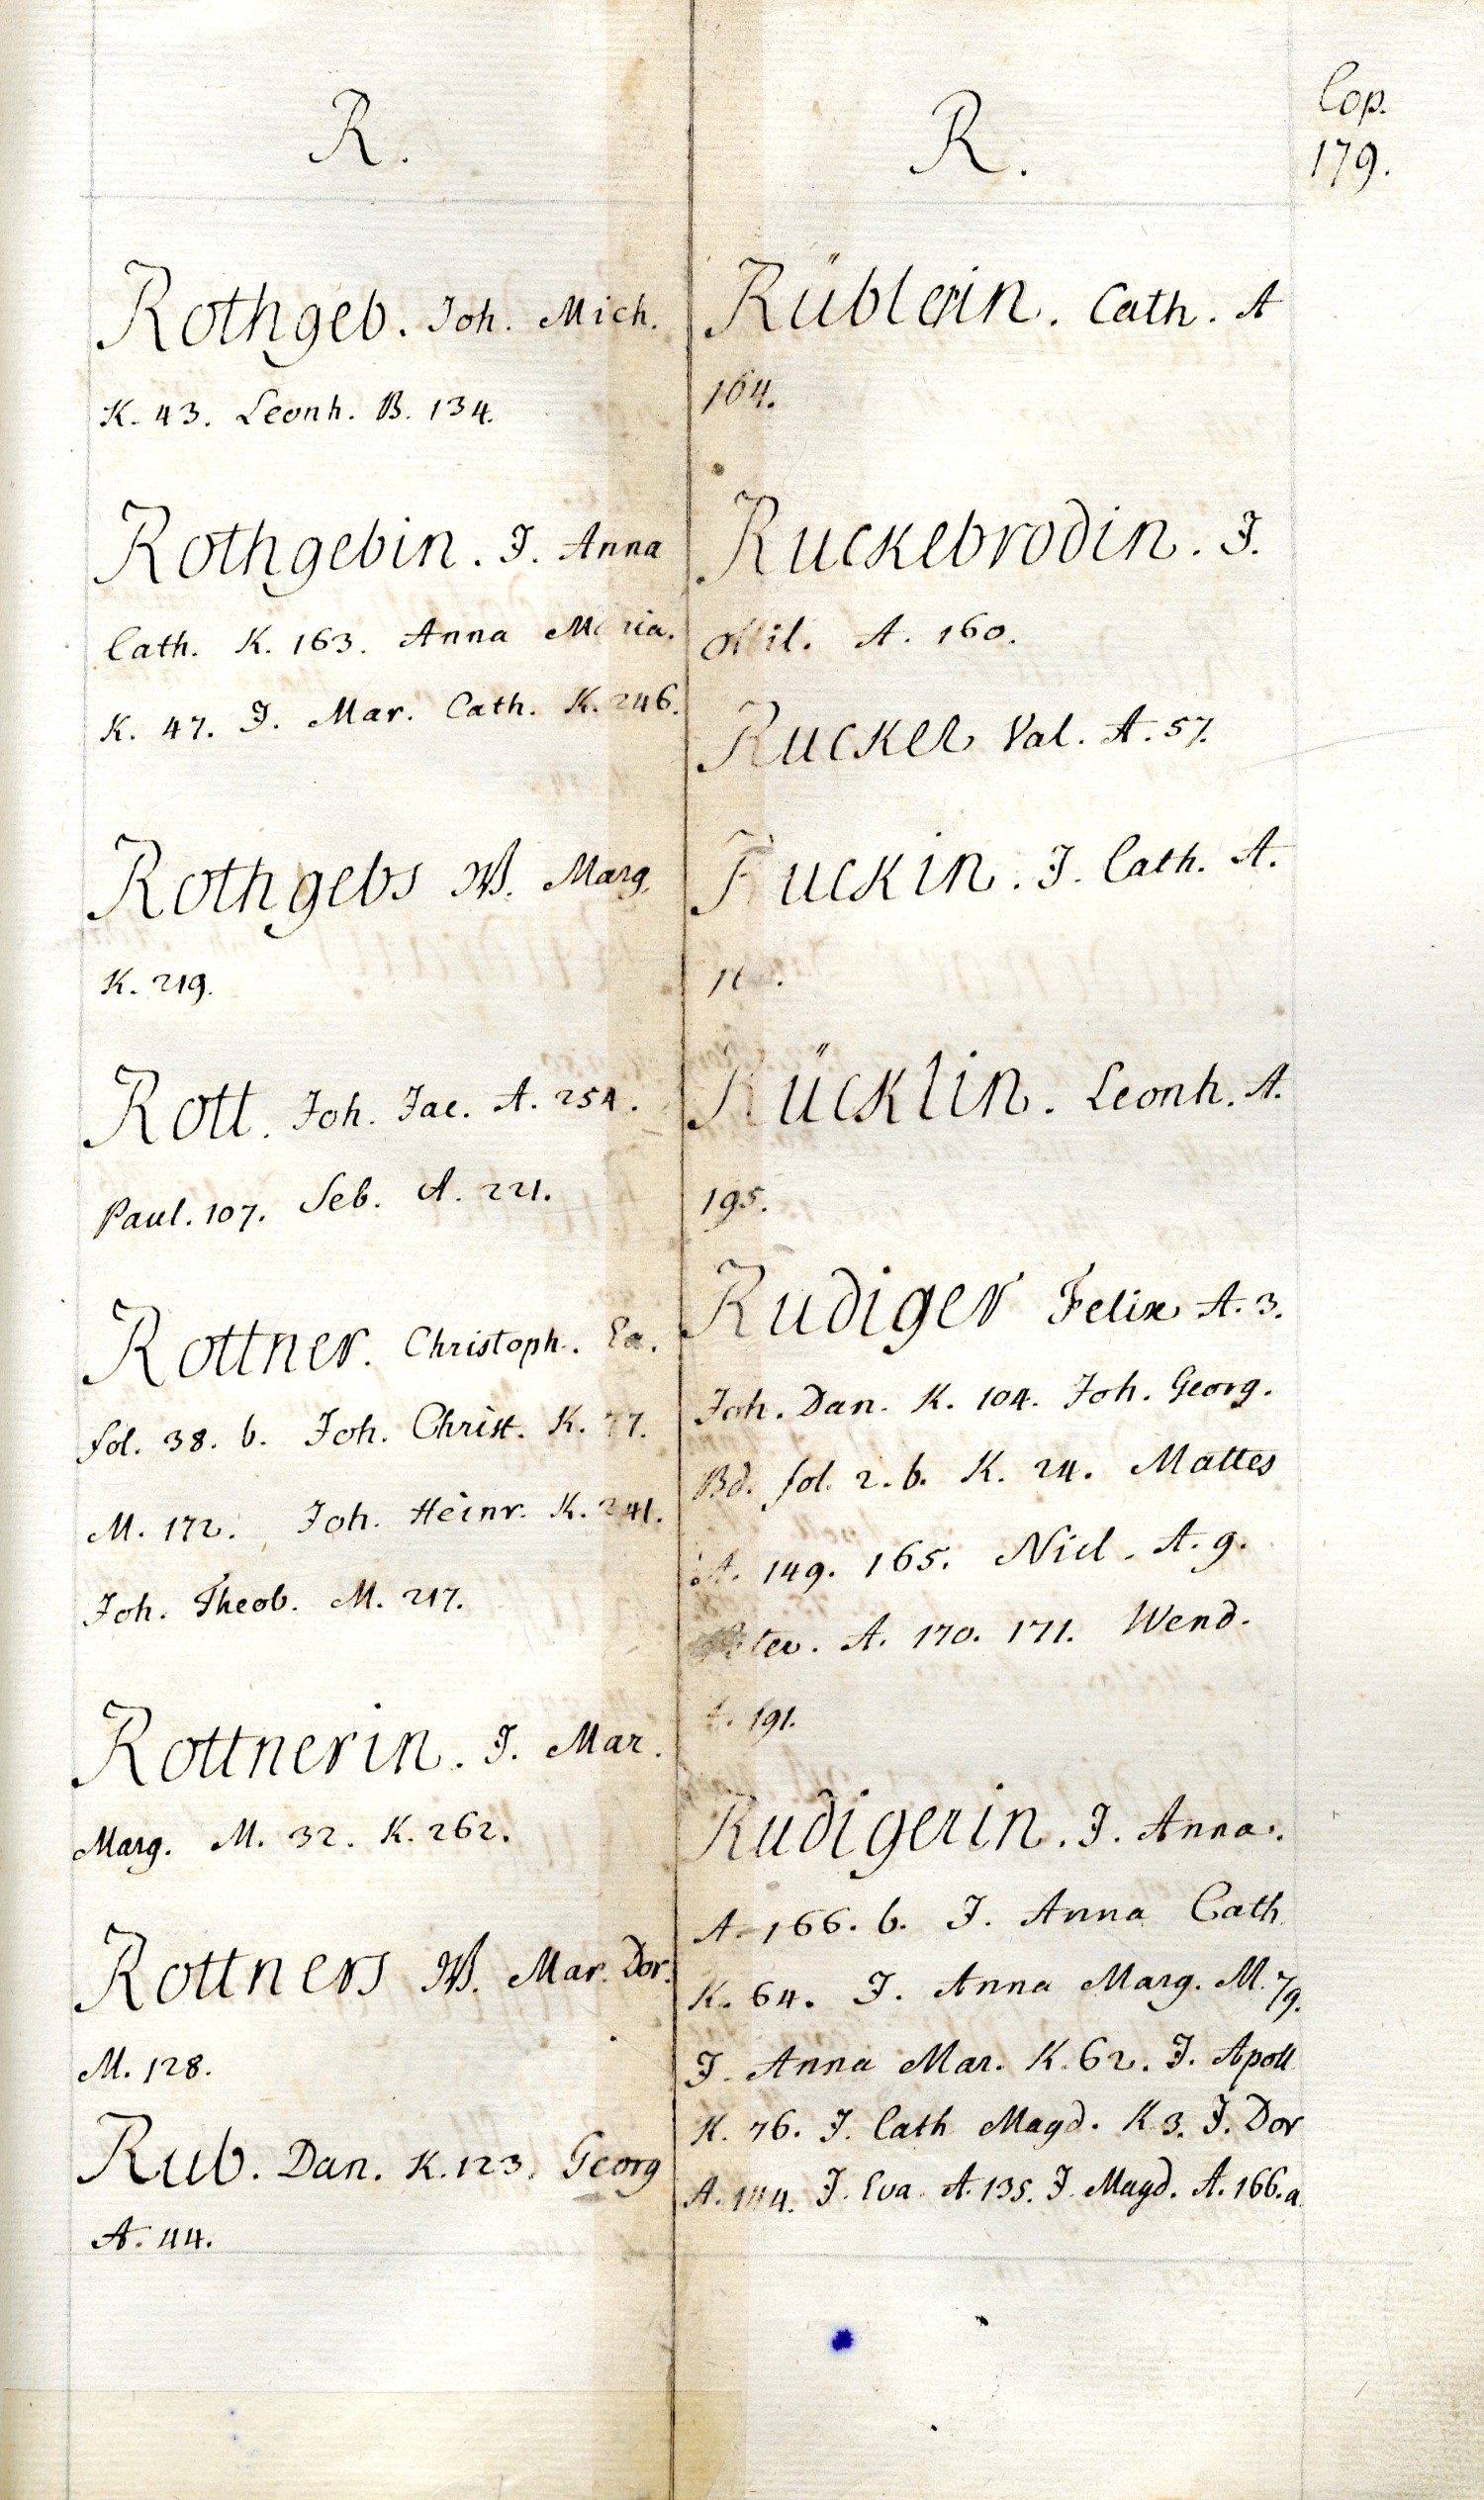 Cop.
179.
R.
Rothgeb. Joh. Mich.
K. 43. Leonh. B. 134.
Rothgebin. J. Anna
Cath. K. 163. Anna Maria.
K. 47. J. Mar. Cath. K. 246.
Rothgebs W. Marg.
K. 219.
Rott. Joh. Jac. A. 254.
Paul. 107. Seb. A. 221.
Rottner. Christoph.
fol. 38. b. Joh. Christ. K. 77.
M. 172. Joh. Heinr. K. 241.
Joh. Theob. M. 217.
Rottnerin. J. Mar.
Marg. M. 32. K. 262.
Rottners W. Mar. Dor.
M. 128.
Rub. Dan. K. 123. Georg
A. 44.
R.
Rüblerin. Cath. A
164.
Ruckebrodin. J.
Ottil. A. 160.
Rucker Val. A. 57.
Ruckin. J. Cath. A.
Rücklin. Leonh. A.
195.
Rudiger Felix A. 3.
Joh. Dan. K. 104. Joh. Georg.
Bd. fol. 2. b. K. 24. Mattes
A. 149. 165. Nicl. A. 9.
Peter. A. 170. 171. Wend.
191.
Rudigerin. J. Anna.
A. 166. b. J. Anna Cath
K. 64. J. Anna Marg. M. 79.
J. Anna Mar. K. 62. J. Apoll
K. 76. J. Cath Magd. K 3. J. Dor
A. 144. J. Eva A. 135. J. Magd. A. 166. a